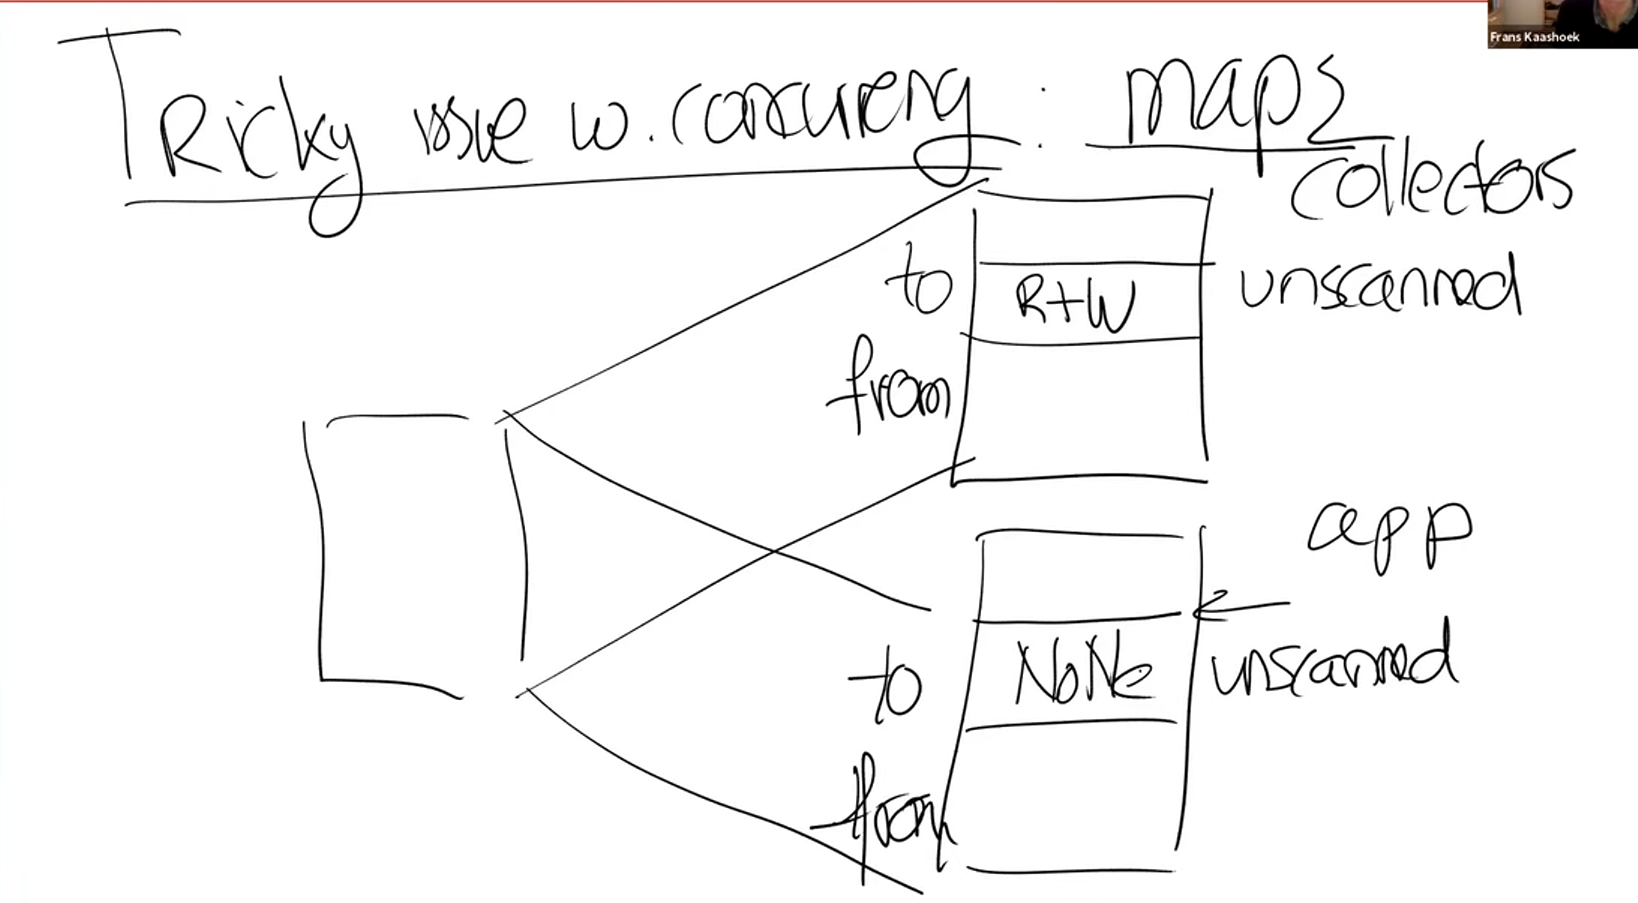 Frans Kaashoek
Tricky issue w. concurrency : maps
collectors
to R+W unscanned
from
app
to NoNe unscanned
from